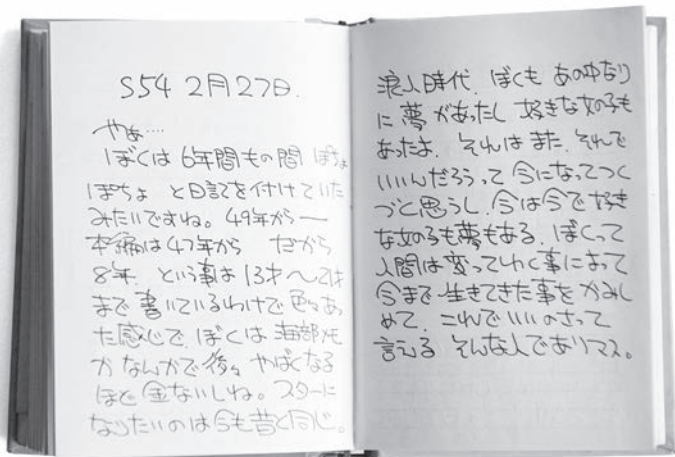 S54 2月27日.
やぁ…
ぼくは 6年間もの間 ぽちょ
ぽちょ と日記を付けていた
みたいですね。49年から—
本編は47年から だから
8年. という事は 13才〜
まで 書いているわけで 色々あ
った感じで. ぼくは
かなんかで 後々 やばくなる
ほど 金ないしね。スターに
なりたいのは今も昔と同じ。
浪人時代. ぼくも あの中なり
に 夢があったし 好きな女の子も
あったよ. それはまた. それで
いいんだろうって 今になってつく
づく思うし. 今は今で 好き
な女の子も夢もある. ぼくって
人間は変っていく事によって
今まで生きてきた事を かみし
めて. これでいいのさって
言える そんな人でありマス。